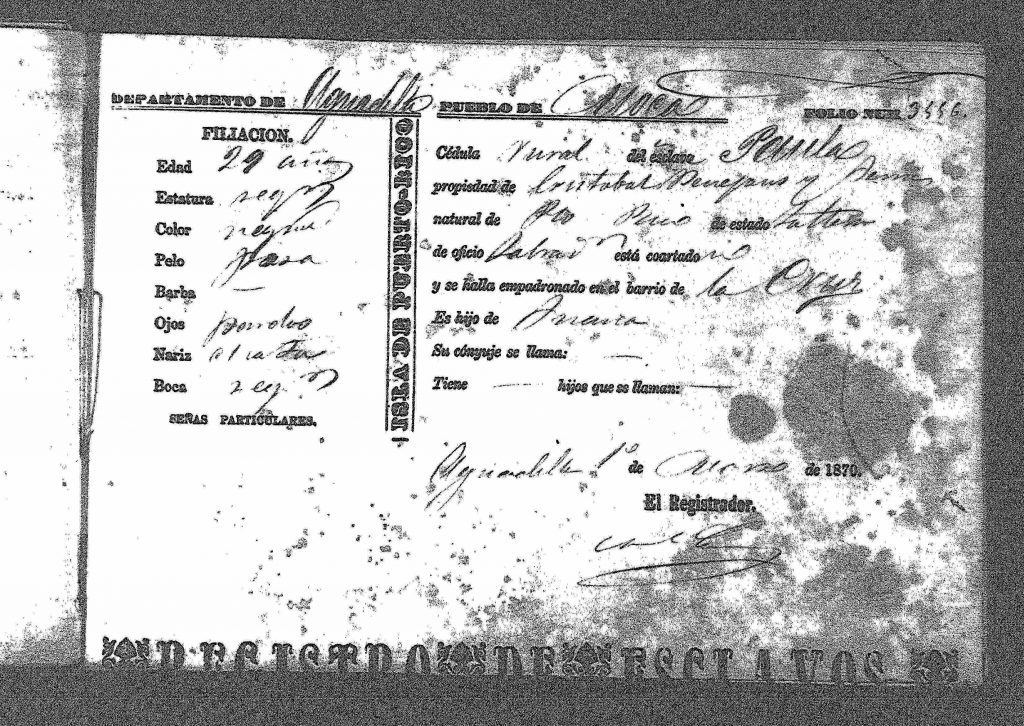 DEPARTAMENTO DE Aguadilla PUEBLO DE Moca FOLIO NUM. 3446.
FILIACION.
Edad 29 años
Estatura regr
Color negro
Pelo pasa
Barba —
Ojos pardos
Nariz chata
Boca regr
SEÑAS PARTICULARES.
ISLA DE PUERTO-RICO
Cédula rural del esclavo Paula
propiedad de Cristobal Benejans y
natural de Pto Rico de estado soltera
de oficio Labrador está coartado no
y se halla empadronado en el barrio de la Cruz
Es hijo de Juana
Su cónyuje se llama: —
Tiene — hijos que se llaman: —
Aguadilla 1º de Marzo de 1870.
El Registrador.
REGISTRO DE ESCLAVOS